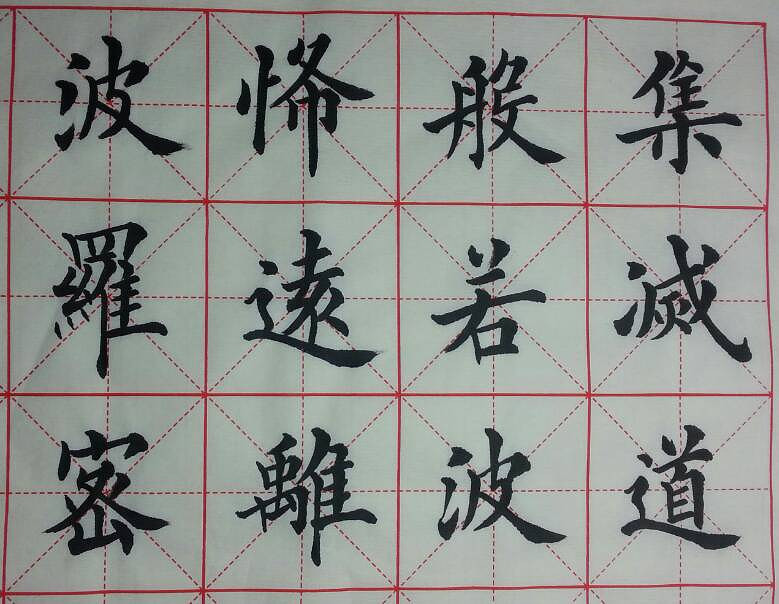 集滅道
般若波
怖遠離
波羅密